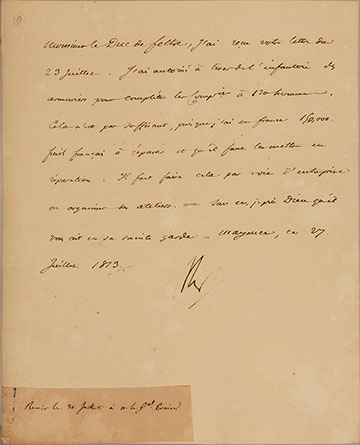 Monsieur le Duc de feltre, J'ai reçu votre lettre du
23 Juillet. J'ai autorisé à tirer de l'infanterie des
armuriers pour compléter les Compies à 120 hommes.
Cela n'est pas suffisant, puisque j'ai en france 150,000.
fusils français à réparer et qu'il faut les mettre en
réparation. Il faut faire cela par voie d'entreprise
ou organiser des ateliers. — Sur ce, je prie Dieu qu'il
vous ait en sa sainte garde — Mayence, ce 27
Juillet 1813.
Remis le 30 Juillet à Mr le Gal